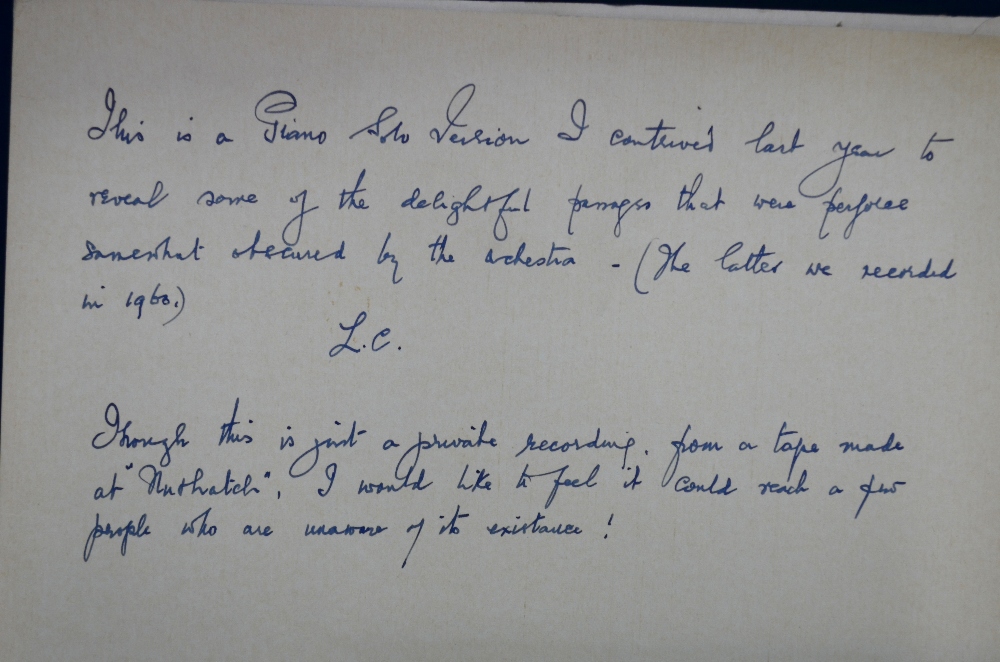 This is a Piano Solo Version I contrived last year to
reveal some of the delightful passages that were perforce
somewhat obscured by the orchestra - (The latter we recorded
in 1960.)
L.C.
Though this is just a private recording, from a tape made
at "Nuthatch", I would like to feel it could reach a few
people who are unaware of its existance!